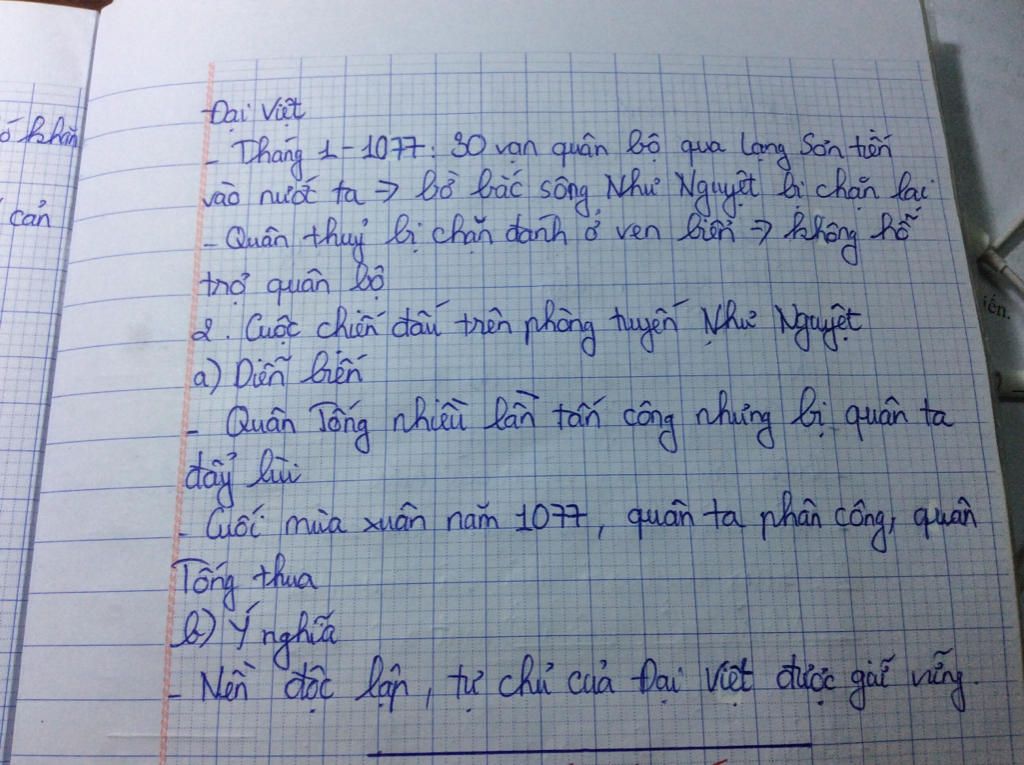 Đại Việt
- Tháng 1-1077: 30 vạn quân bộ qua Lạng Sơn tiến
vào nước ta → bờ bắc sông Như Nguyệt bị chặn lại
- Quân thuỷ bị chặn đánh ở ven biển → không hỗ
trợ quân bộ
2. Cuộc chiến đấu trên phòng tuyến Như Nguyệt
a) Diễn biến
- Quân Tống nhiều lần tấn công nhưng bị quân ta
đẩy lùi
- Cuối mùa xuân năm 1077, quân ta phản công, quân
Tống thua
b) Ý nghĩa
- Nền độc lập, tự chủ của Đại Việt được giữ vững.
ó khăn
cản
iến.